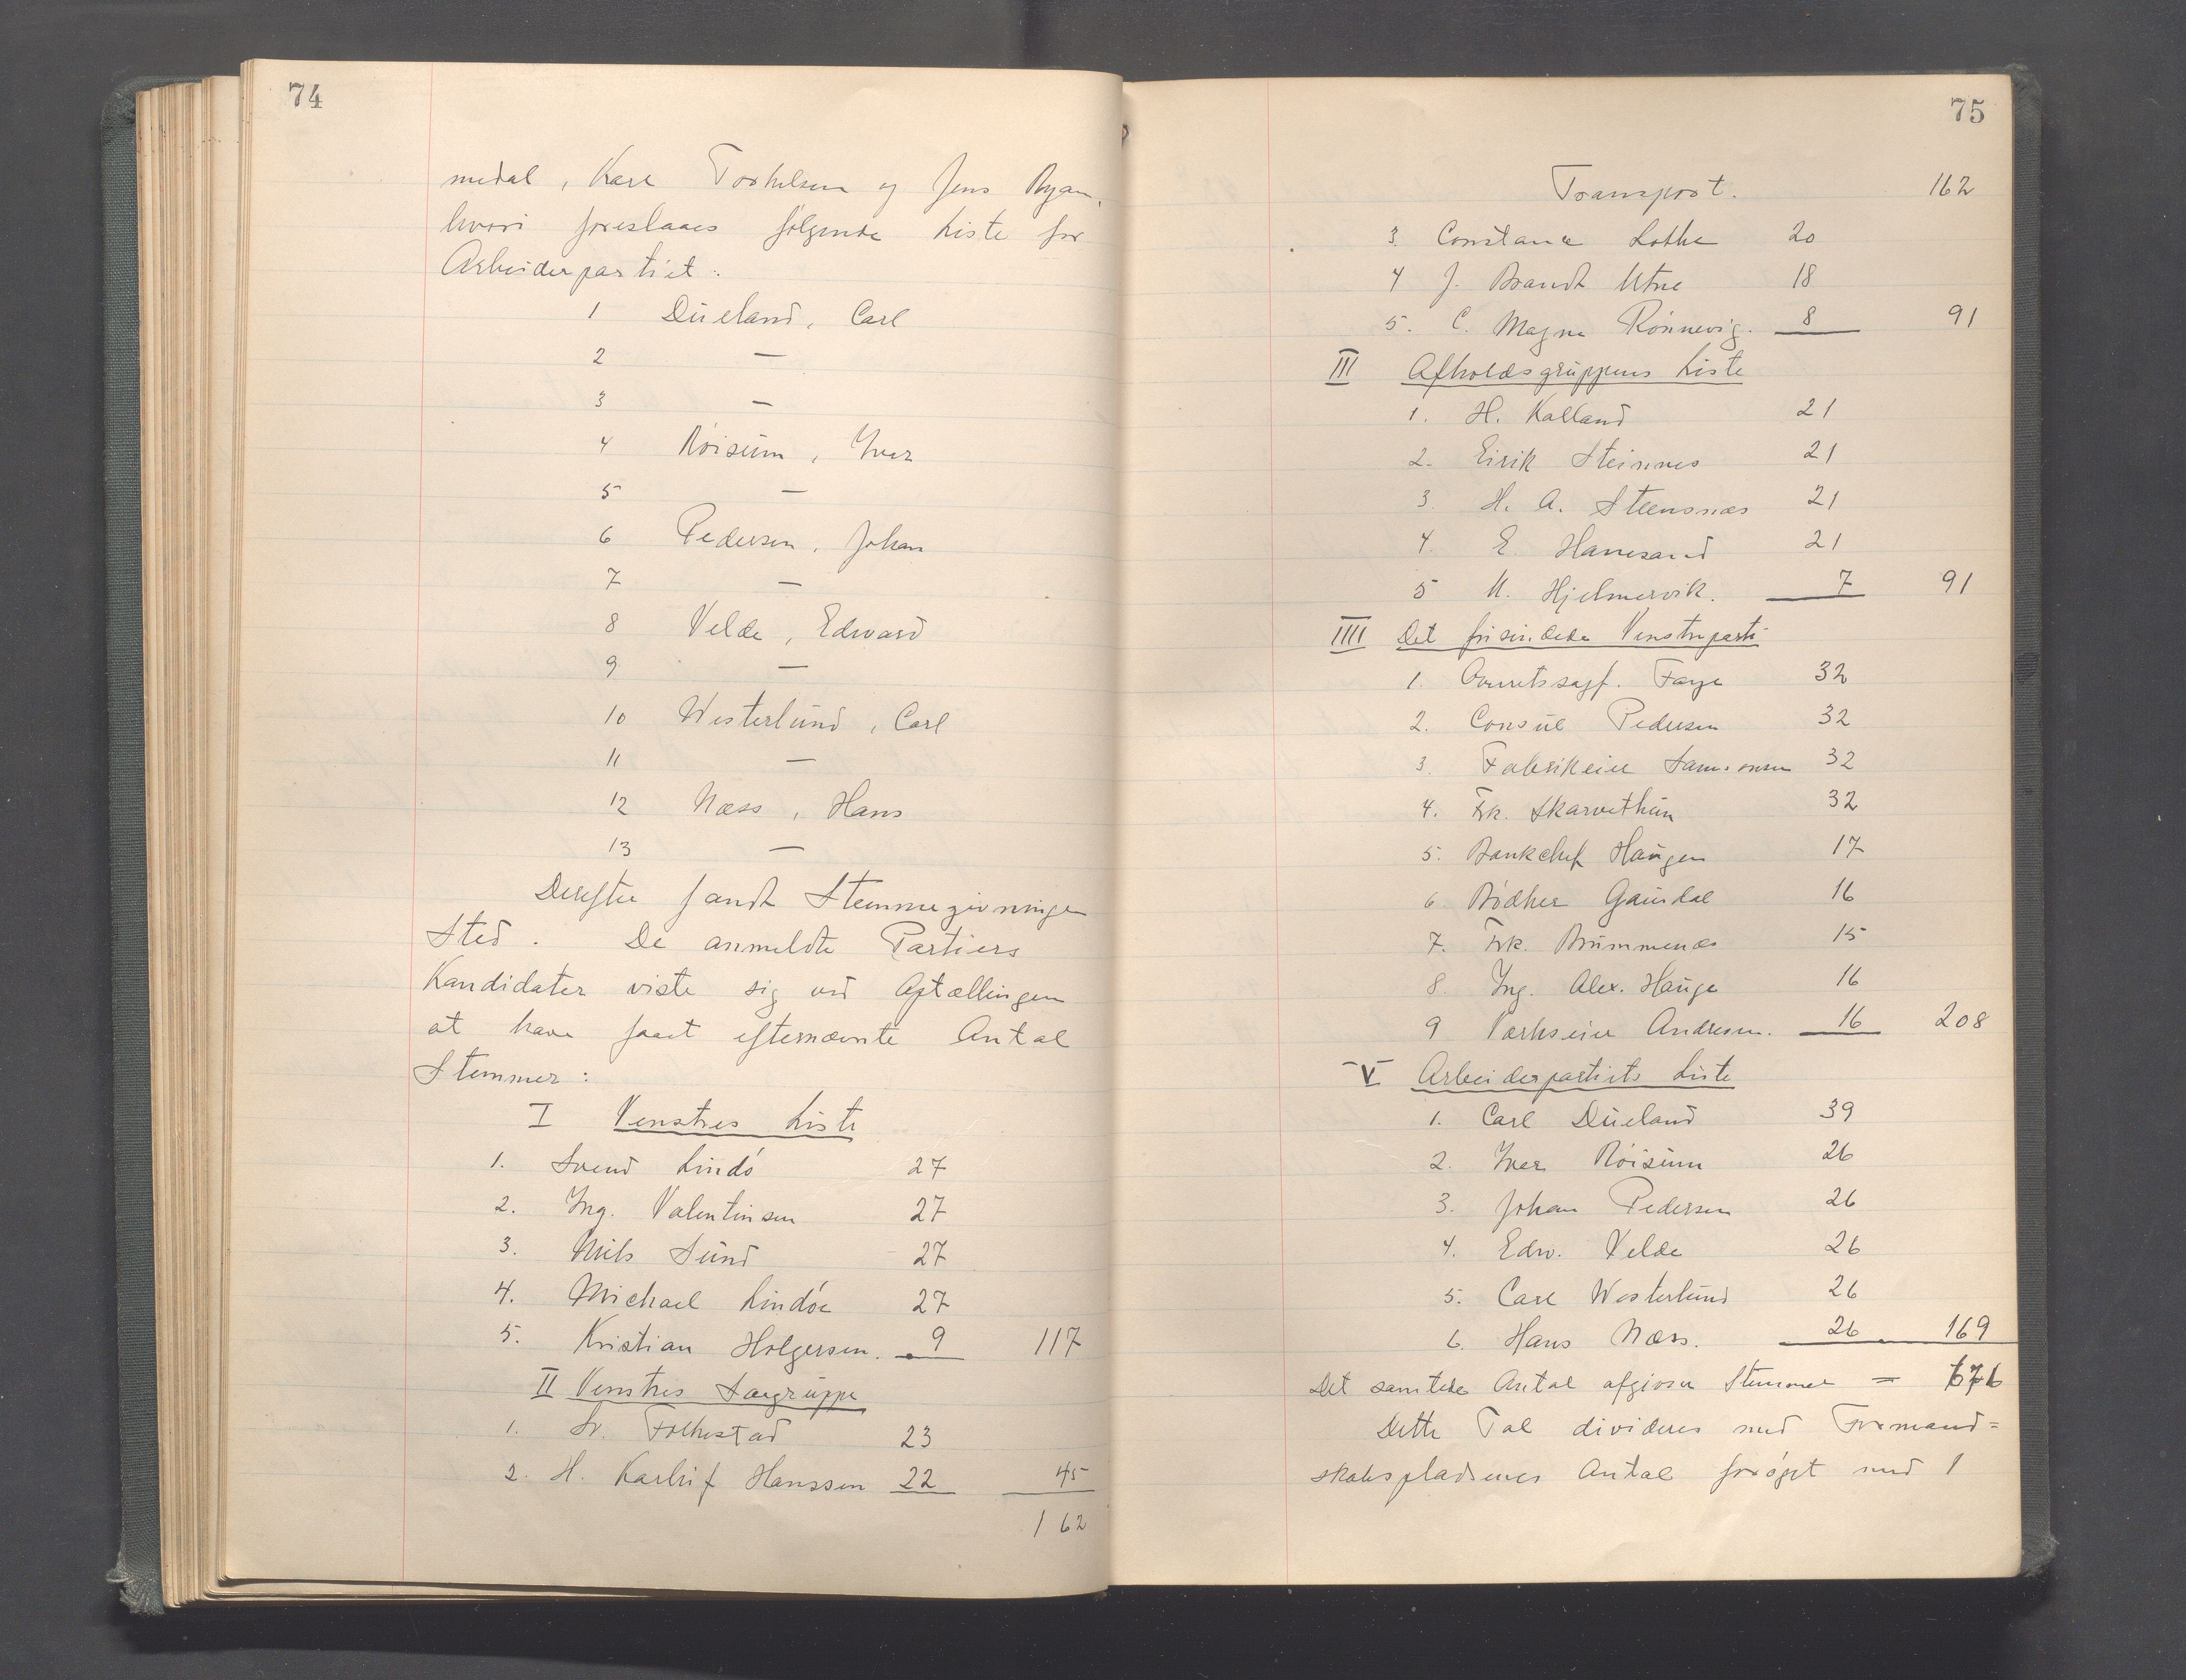 74
medal, Karl Torkelsen og Jens Ryan,
hvori foreslaaes følgende Liste for
Arbeiderpartiet:
1 Düeland, Carl
2 —
3 —
4 Röisüm, Iver
5 —
6 Pedersen, Johan
7 —
8 Velde, Edward
9 —
10 Westerlünd, Carl
11 —
12 Næss, Hans
13 —
Derefter fandt Stemmegivningen
Sted. De anmeldte Partiers
Kandidater viste sig ved Optællingen
at have faaet efternævnte Antal
Stemmer:
I Venstres Liste
1. Svend Lindö 27
2. Ing. Valentinsen 27
3. Nils Sünd 27
4. Michael Lindöe 27
5. Kristian Holgersen. 9 117
II Venstres Særgrüppe
1. Sv. Folkestad 23
2. H. Karluf Hanssen 22 45
162
75
Transport. 162
3. Constance Lothe 20
4 J. Brandt Utne 18
5. C. Magne Rönnevig. 8 91
III Afholdsgrüppens Liste
1. H. Kalland 21
2. Eirik Steinnes 21
3. H. A. Steensnæs 21
4. E. Hanesand 21
5 M. Hjelmervik. 7 91
IIII Det frisindede Venstreparti
1. Overretssagf. Faye 32
2. Consül Pedersen 32
3. Fabrikeier Samsonsen 32
4. Frk. Skarvethün 32
5. Bankchef Haügen 17
6. Bödker Gaüsdal 16
7. Frk. Brümmenæs 15
8. Ing. Alex. Haüge 16
9 Værkseier Andresen. 16 208
V Arbeiderpartiets Liste
1. Carl Düeland 39
2. Iver Röisüm 26
3. Johan Pedersen 26
4. Edw. Velde 26
5. Carl Westerlünd 26
6. Hans Næss. 26 169
Det samtede Antal afgivne Stemmer = 676
Dette Tal divideres med Formand=
skabspladsenes Antal forøget med 1